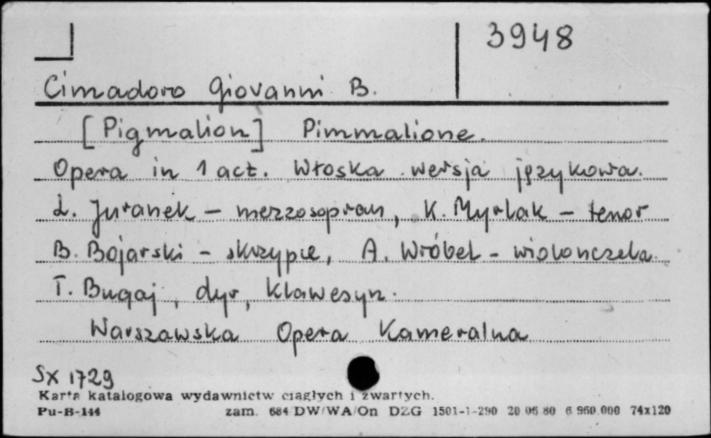 3948
Cimadoro Giovanni B.
[Pigmalion] Pimmalione.
Opera in 1 act. Włoska wersja językowa.
L. Juranek – mezzosopran, K. Myrlak – tenor
B. Bojarski – skrzypce, A. Wróbel – wiolonczela
T. Bugaj, dyr, klawesyn.
Warszawska Opera Kameralna
SX 1729
Karta katalogowa wydawnictw ciągłych i zwartych.
Pu-B-144 zam. 684 DW/WA/On DZG 1501-1-290 20 06 80 6 960.000 74x120